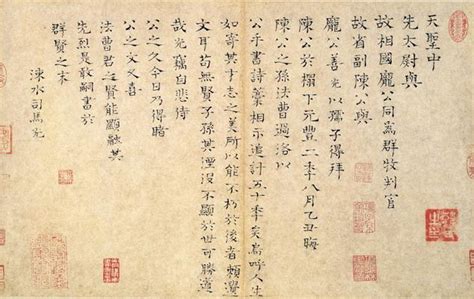 天聖中
先太尉與
故相國龐公同為群牧判官
故省副陳公與
龐公善光以孺子得拜
陳公於榻下元豐二秊八月乙丑晦
陳公之孫法曹過洛以
公手書詩藁相示追計五十秊矣嗚呼人生
如寄其才志之美所以能不朽於後者賴遺
文耳苟無賢子孫其湮沒不顯於世可勝道
哉光竊自悲侍
公之久今日乃得睹
公之文又喜
法曹君之賢能顯融其
先烈是敢嗣書於
群賢之末
涑水司馬光